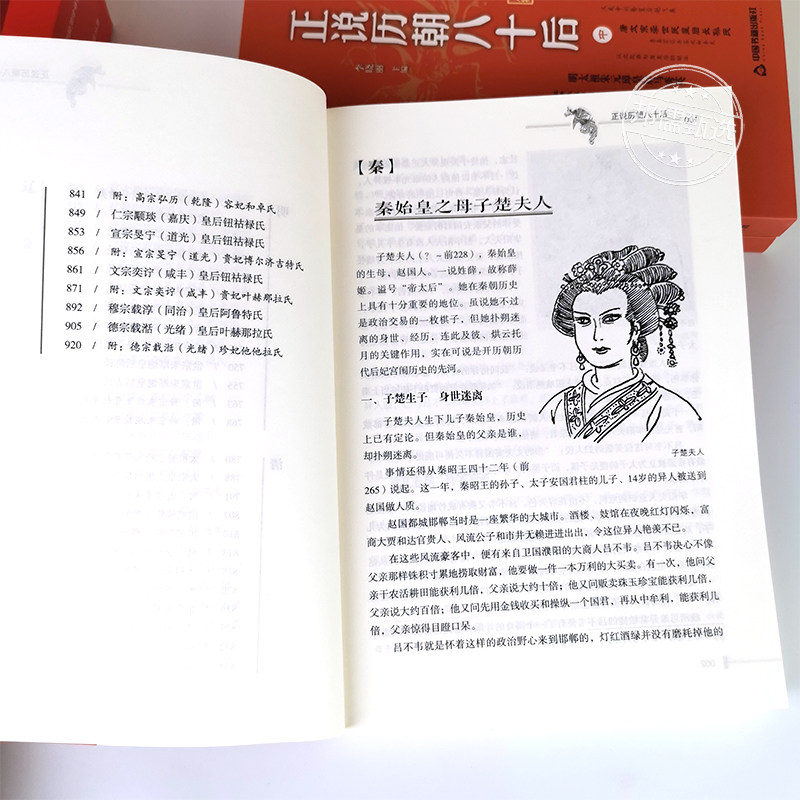 正说历朝八十后
中
中国书籍出版社
李晓丽 主编
841 / 附：高宗弘历（乾隆）容妃和卓氏
849 / 仁宗颙琰（嘉庆）皇后钮祜禄氏
853 / 宣宗旻宁（道光）皇后钮祜禄氏
856 / 附：宣宗旻宁（道光）贵妃博尔济吉特氏
861 / 文宗奕詝（咸丰）皇后钮祜禄氏
871 / 附：文宗奕詝（咸丰）贵妃叶赫那拉氏
892 / 穆宗载淳（同治）皇后阿鲁特氏
905 / 德宗载湉（光绪）皇后叶赫那拉氏
920 / 附：德宗载湉（光绪）珍妃他他拉氏
正说历朝八十后
【秦】
秦始皇之母子楚夫人
子楚夫人（？－前228），秦始皇
的生母，赵国人。一说姓薛，故称薛
姬。谥号“帝太后”。她在秦朝历史
上具有十分重要的地位。虽说她不过
是政治交易的一枚棋子，但她扑朔迷
离的身世、经历，连此及彼、烘云托
月的关键作用，实在可说是开历朝历
代后妃宫闱历史的先河。
一、子楚生子 身世迷离
子楚夫人生下儿子秦始皇，历史
上已有定论。但秦始皇的父亲是谁，
却扑朔迷离。
子楚夫人
事情还得从秦昭王四十二年（前
265）说起。这一年，秦昭王的孙子、太子安国君柱的儿子、14岁的异人被送到
赵国做人质。
赵国都城邯郸当时是一座繁华的大城市。酒楼、妓馆在夜晚红灯闪烁，富
商大贾和达官贵人、风流公子和市井无赖进进出出，令这位异人艳羡不已。
在这些风流豪客中，便有来自卫国濮阳的大商人吕不韦。吕不韦决心不像
父亲那样铢积寸累地捞取财富，他要做一件一本万利的大买卖。有一次，他问父
亲干农活耕田能获利几倍，父亲说大约十倍；他又问贩卖珠玉珍宝能获利几倍，
父亲说大约百倍；他又问先用金钱收买和操纵一个国君，再从中牟利，能获利几
倍，父亲惊得目瞪口呆。
吕不韦就是怀着这样的政治野心来到邯郸的，灯红酒绿并没有磨耗掉他的